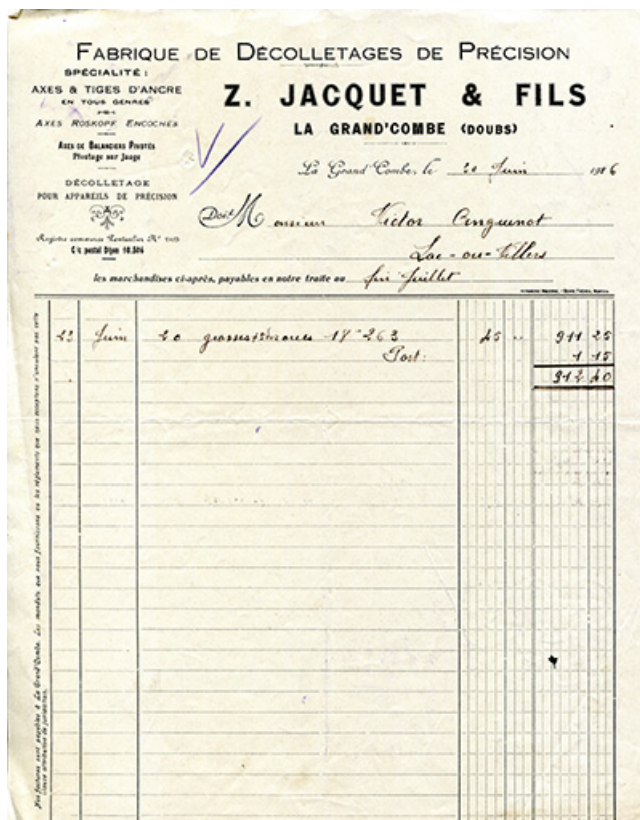 FABRIQUE DE DÉCOLLETAGES DE PRÉCISION
SPÉCIALITÉ :
AXES & TIGES D'ANCRE
EN TOUS GENRES
AXES ROSKOPF ENCOCHÉS
AXES DE BALANCIERS PIVOTÉS
Pivotage sur Jauge
DÉCOLLETAGE
POUR APPAREILS DE PRÉCISION
Registre commerce Pontarlier N°
C/c postal Dijon 10.506
Z. JACQUET & FILS
LA GRAND'COMBE (DOUBS)
La Grand'Combe, le 20 Juin 1926
Doit Monsieur Victor Anguenot
Lac-ou-Villers
les marchandises ci-après, payables en notre traite au fin Juillet
23 Juin 20 grosses 18 263 45 " 911 25
Port: 1 15
912 40
Nos factures sont payables à La Grand'Combe. Les mandats que nous fournissons ou les règlements que nous acceptons n'annulent pas cette
clause attributive de juridiction.